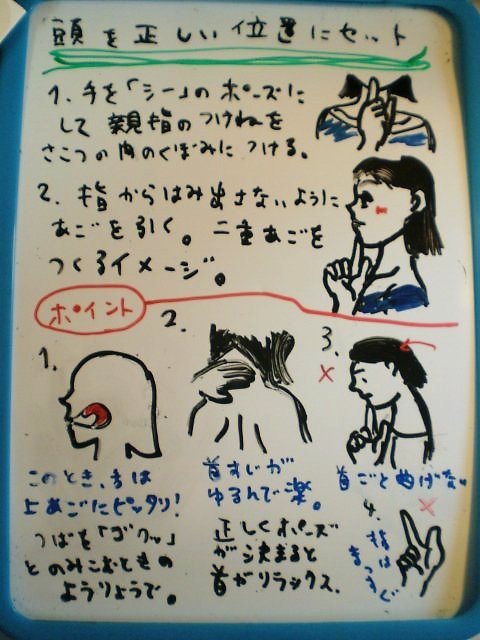 頭を正しい位置にセット
1. 手を「シー」のポーズに
して親指のつけねを
さこつの内のくぼみにつける。
2. 指からはみ出さないように
あごを引く。二重あごを
つくるイメージ。
ポイント
1.
このとき、舌は
上あごにピッタリ!
つばを「ゴクッ」
とのみこむときの
ようりょうで。
2.
首すじが
ゆるんで楽。
正しくポーズ
が決まると
首がリラックス.
3.
×
首ごと曲げない
×
4. 指は
まっすぐ